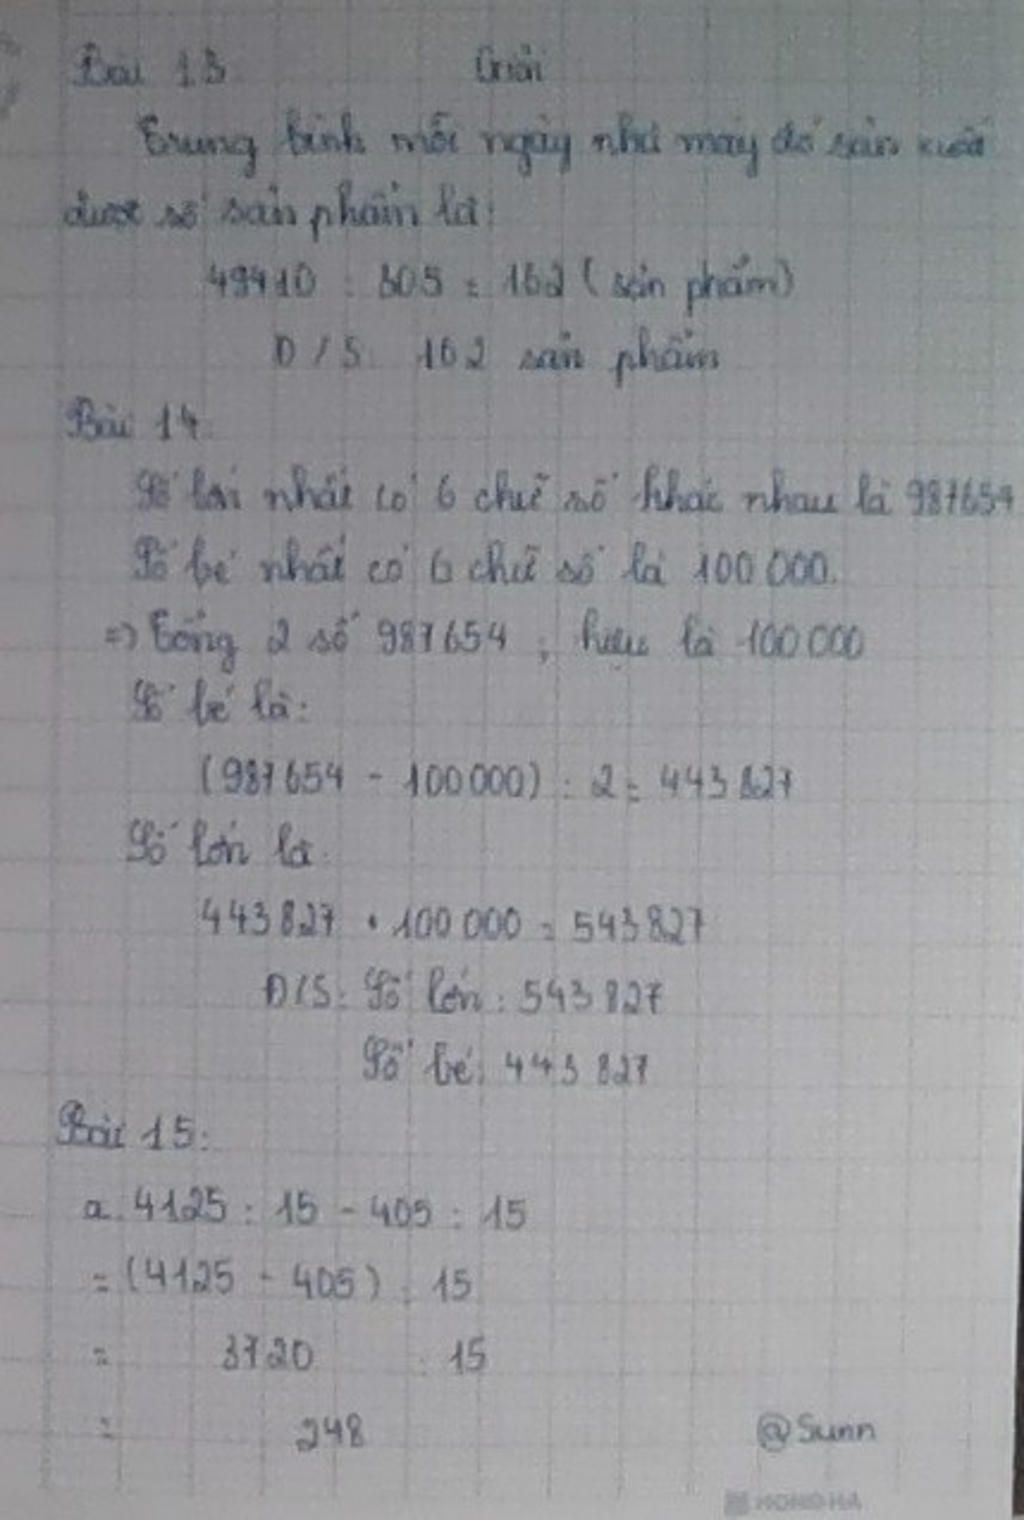 Bài 13 Giải
Trung bình mỗi ngày nhà máy đó sản xuất
được số sản phẩm là:
49410 : 305 = 162 (sản phẩm)
Đ/S: 162 sản phẩm
Bài 14:
Số lớn nhất có 6 chữ số khác nhau là 987654
Số bé nhất có 6 chữ số là 100 000.
=> Tổng 2 số 987654 ; hiệu là 100 000
Số bé là:
(987654 - 100 000) : 2 = 443 827
Số lớn là:
443 827 + 100 000 = 543 827
Đ/S: Số lớn: 543 827
Số bé: 443 827
Bài 15:
a. 4125 : 15 - 405 : 15
= (4125 - 405) : 15
= 3720 : 15
= 248
@Sunn
HONG HA